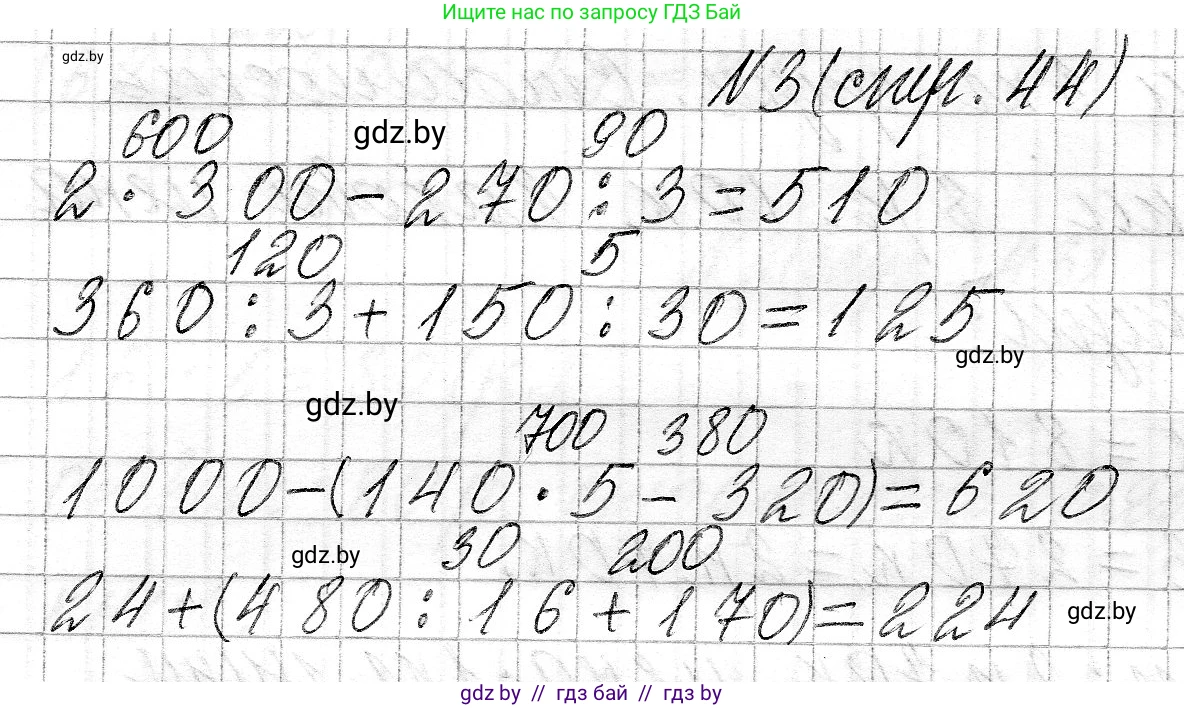 Ищите нас по запросу ГДЗ Бай
gdz.by
N3(стр. 44)
600 gdz.by 90
2 · 300 - 270 : 3 = 510
120 5
360 : 3 + 150 : 30 = 125
gdz.by
gdz.by
700 380
1000 - (140 · 5 - 320) = 620
gdz.by 30 200
24 + (480 : 16 + 170) = 224 gdz.by
gdz by // гдз бай // гдз by